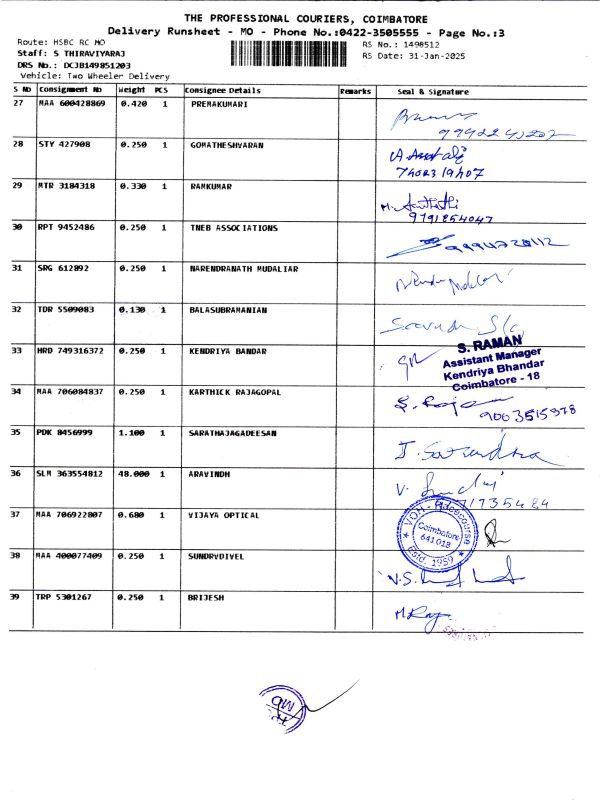 THE PROFESSIONAL COURIERS, COIMBATORE
Delivery Runsheet - MO - Phone No.:0422-3505555 - Page No.:3
Route: HSBC RC MO
RS No.: 1498512
Staff: S THIRAVIYARAJ
RS Date: 31-Jan-2025
DRS No.: DCJB149851203
Vehicle: Two Wheeler Delivery
S No Consignment No Weight PCS Consignee Details Remarks Seal & Signature
27 MAA 600428869 0.420 1 PREMAKUMARI
28 STY 427908 0.250 1 GOMATHESHVARAN
29 MTR 3184318 0.330 1 RAMKUMAR
9791854047
30 RPT 9452486 0.250 1 TNEB ASSOCIATIONS
31 SRG 612892 0.250 1 NARENDRANATH MUDALIAR
32 TDR 5509083 0.130 1 BALASUBRAMANIAN
33 HRD 749316372 0.250 1 KENDRIYA BANDAR
S. RAMAN
Assistant Manager
Kendriya Bhandar
Coimbatore - 18
34 MAA 706084837 0.250 1 KARTHICK RAJAGOPAL
35 PDK 8456999 1.100 1 SARATHAJAGADEESAN
36 SLM 363554812 48.000 1 ARAVINDH
37 MAA 706922807 0.680 1 VIJAYA OPTICAL
Racecourse
Coimbatore
641 018
Estd. 1959
38 MAA 400077409 0.250 1 SUNDRVDIVEL
39 TRP 5301267 0.250 1 BRIJESH